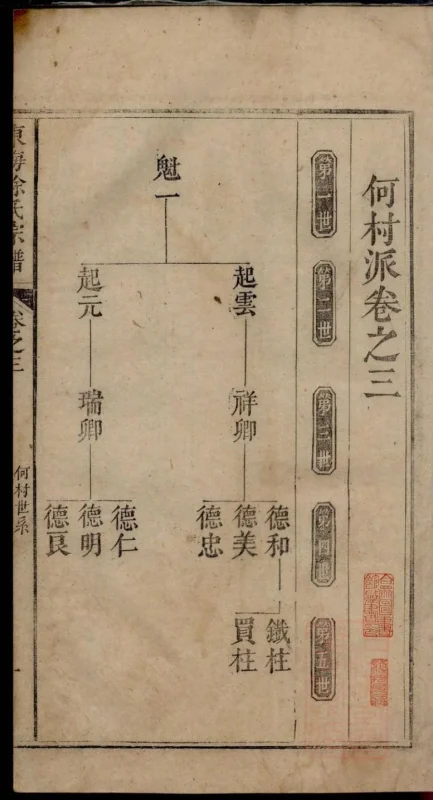 何村派卷之三
第一世
第二世
第三世
第四世
第五世
魁一
起雲
起元
祥卿
瑞卿
德和
德美
德忠
德仁
德明
德良
鐵柱
買柱
東海徐氏宗譜
卷之三
何村世系
一